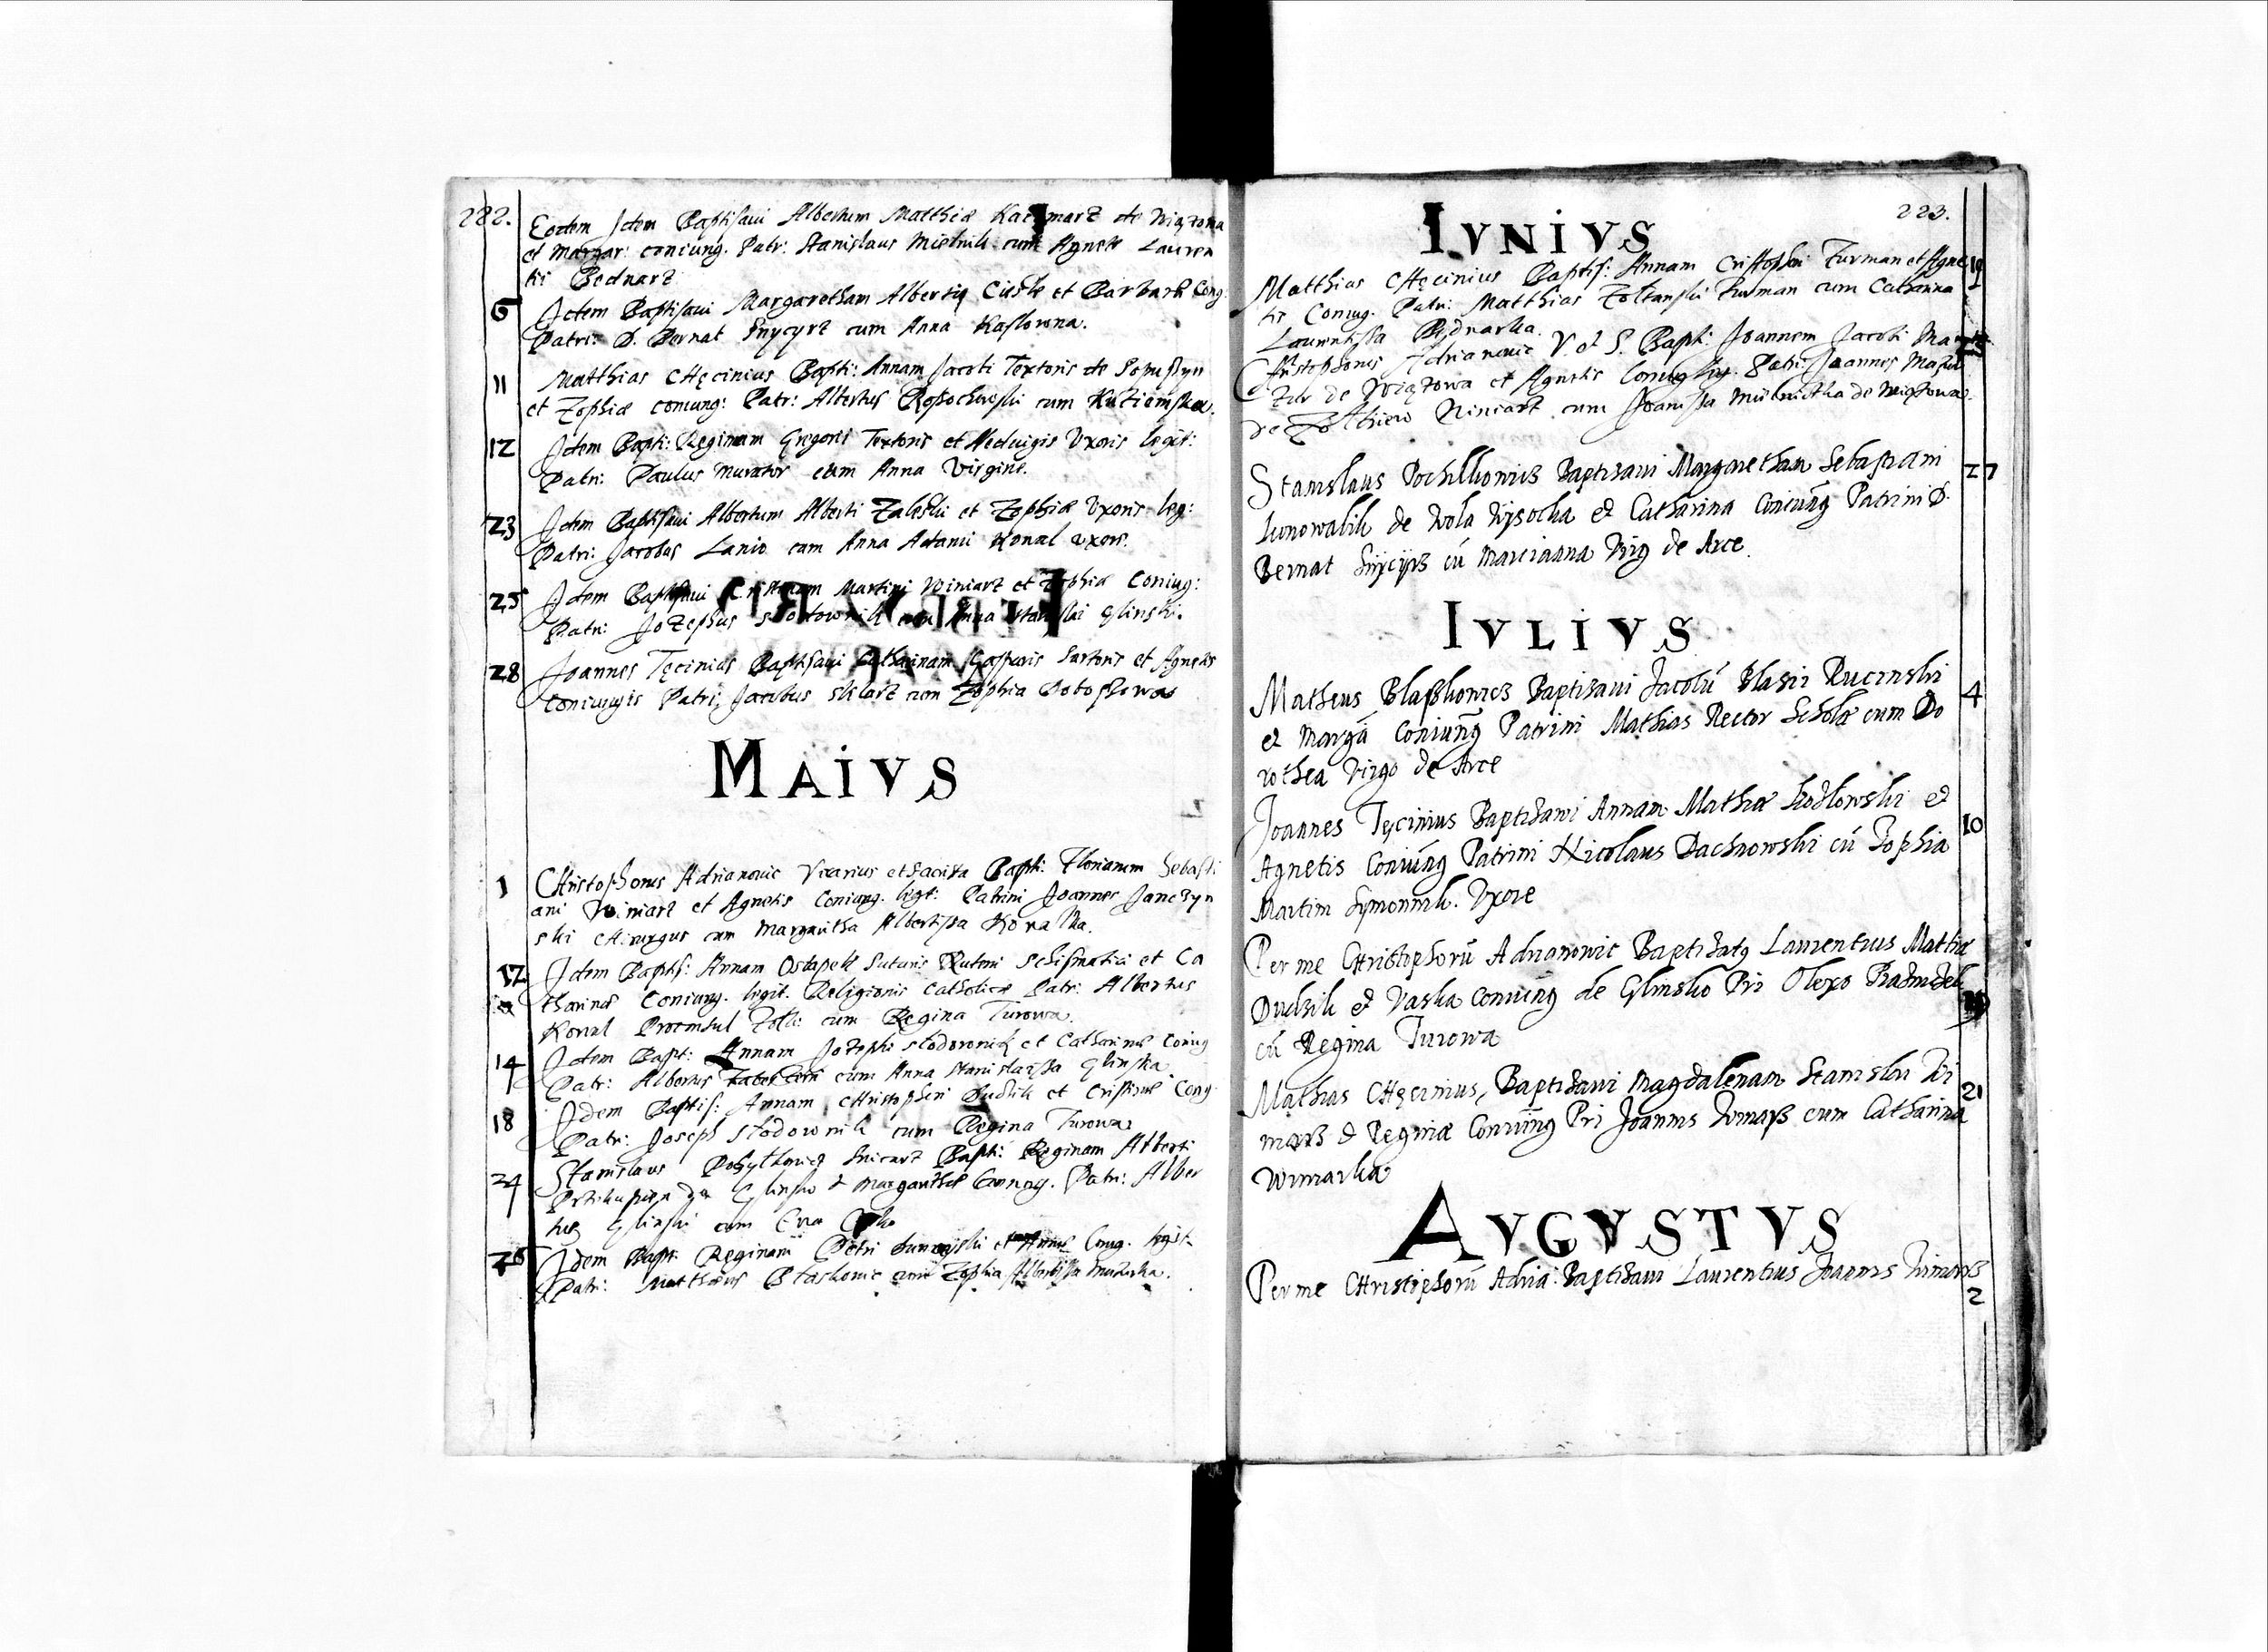 222.
Eodem Idem Baptisaui Albertum Matthiæ Kaczmarz de Wiązowa
et Margar: coniung. Patr: Stanislaus Mielnik cum Agnete Lauren
tii Bednarz
6 Idem Baptisaui Margaretham Alberti Cieśle et Barbaræ Cong.
Patri: D. Bernat Snycyrz cum Anna
11 Matthias CHęcinius Bapti: Annam Jacobi Textoris de
et Zophiæ coniung: Patr: Albertus cum
12 Idem Bapti: Reginam Gregorii Textoris et Heduigis Vxoris legit:
Patri: Paulus murator cum Anna Virgine.
23 Idem Baptisaui Albertum Alberti Zaleski et Zophiæ Vxoris leg:
Patri: Jacobus Lanio cum Anna Adami Kowal vxore.
25 Idem Baptisaui Cristinam Martini Winiarz et Zophiæ Coniug:
Patri: Jozephus Slodownik cum Anna Stanislai Glinski.
28 Joannes Tęcinius Baptisaui Catharinam Gasparis Sartoris et Agnetis
Coniungis Patri: Jacobus Sklarz cum Zophia Doboszowa
MAIVS
1 CHristophorus Adrianowic Vicarius et Bapti: Florianum Sebasti
ani Winiarz et Agnetis Coniung. legt: Patrini Joannes Janczyn
ski CHirurgus cum Margaritha Albertissa Kowalka.
12 Idem Baptis: Annam Ostapek Sutoris Ruteni Schismatici et Ca
tharinæ Coniung. legit. Religionis Catholicæ Patr: Albertus
Kowal Proconsul Zolk: cum Regina Turowa.
14 Idem Bapt: Annam Jozephi Slodownik et Catharinæ Coniug
Patr: Albertus cum Anna Stanislaissa Glinska
18 Idem Baptis: Annam CHristopheri Dudzik et Cristinæ Cong
Patr: Joseph Slodownik cum Regina Turowa
24 Stanislaus Snicarz Bapti: Reginam Alberti
Glinsko et Margarithæ Coniug. Patr: Alber
tus Glinski cum Eva
26 Idem Bapt: Reginam Petri et Annæ Coniug. legit.
Patr: Matthæus Blaskowic cum Zophia Albertissa
223.
IVNIVS
Matthias CHęcinius Baptis: Annam Cristopheri Furman et Agne 19
tis Coniug. Patri: Matthias Zoltanski Furman cum Catharina
Laurentissa Bednarka.
CHristophorus Adrianowic V. et S. Bapti: Joannem Jacobi Ma
zur de Wiązowa et Agnetis Coniug. Patri: Joannes Mazur
de Zolkiew Winiarz cum Joanissa Mielniczka de Wiązowa.
Stanislaus Baptizaui Margaretham Sebastiani 27
de Wola Wysocka et Catharina Coniung Patrini D.
Bernat Snycyrz cū Marcianna Virg de Arce.
IVLIVS
Matheus Blaszkowicz Baptizaui Jacobū Blasii Rucinski 4
et Margā Coniung Patrini Mathias Rector Scholæ cum Do
rothea Virgo de Arce
Joannes Tęcinius Baptizawi Annam Mathiæ et 10
Agnetis Coniung Patrini Nicolaus Dachnowski cū Zophia
Martini Vxore
Per me CHristophorū Adrianowic Baptizatq Laurentius Mattiæ
Dudzik et Vaska Coniung de Glinsko Pri Olexo
cū Regina Turowa
Mathias CHęcinius, Baptizawi Magdalenam Stanislai Wi 21
marz et Reginæ Coniung Pri Joannis cum Catharina
Winiarka
AVGVSTVS
Per me CHristophorū Adria: Baptizaui Laurentius Joannis
2